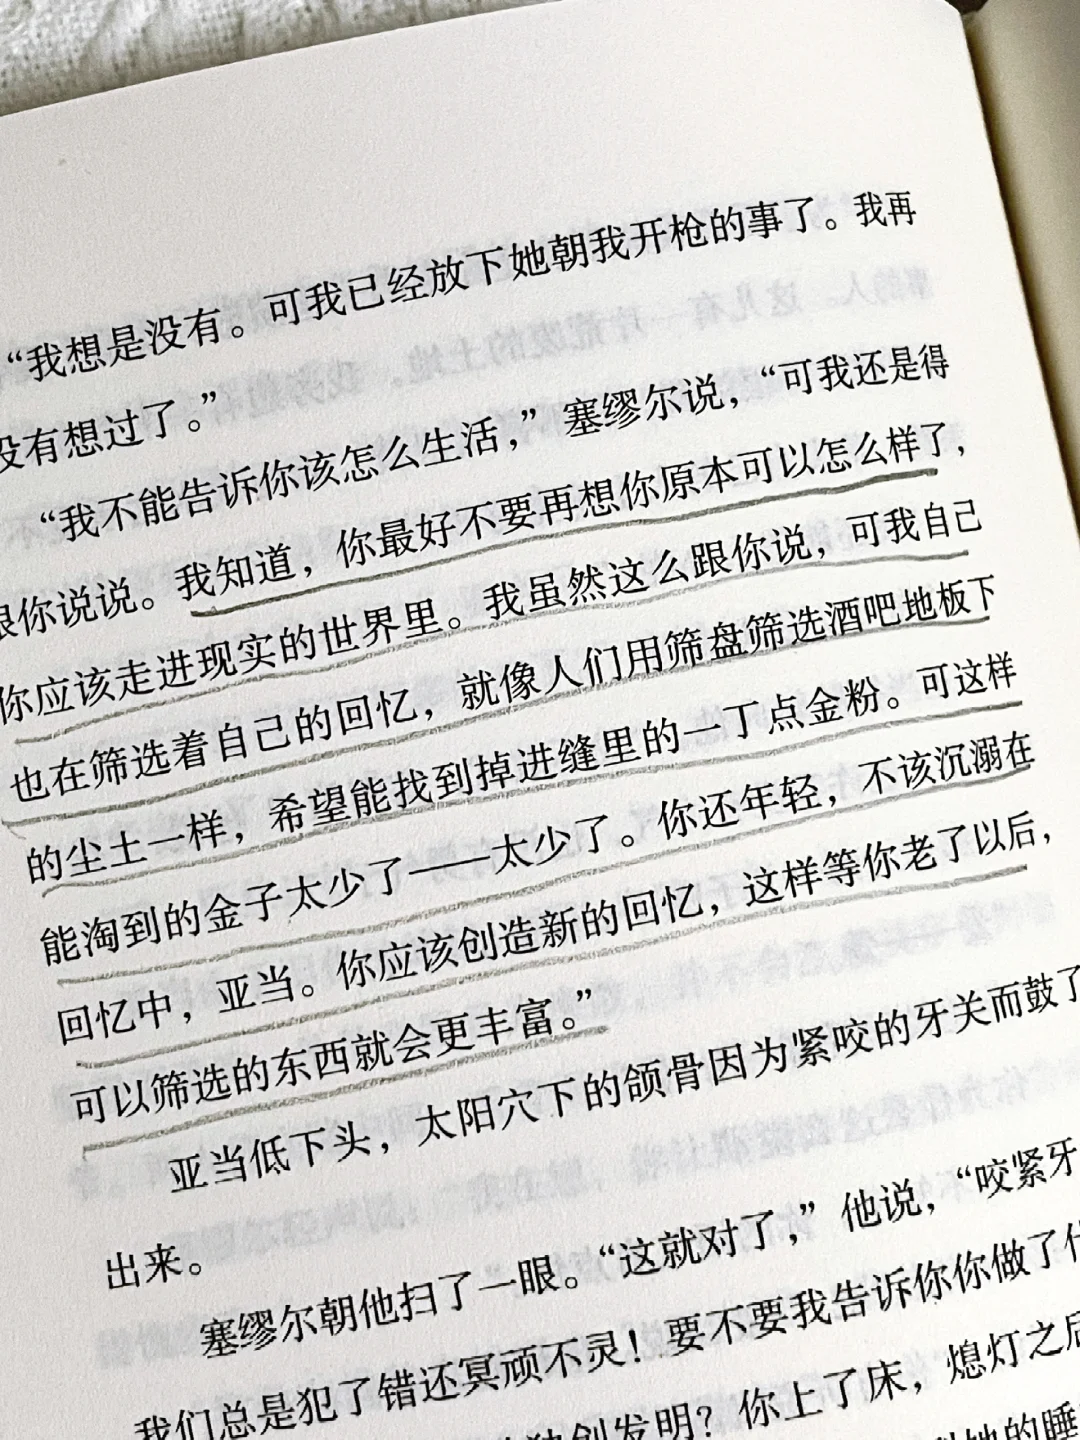 “我想是没有。可我已经放下她朝我开枪的事了。我再
没有想过了。”
“我不能告诉你该怎么生活，”塞缪尔说，“可我还是得
跟你说说。我知道，你最好不要再想你原本可以怎么样了，
你应该走进现实的世界里。我虽然这么跟你说，可我自己
也在筛选着自己的回忆，就像人们用筛盘筛选酒吧地板下
的尘土一样，希望能找到掉进缝里的一丁点金粉。可这样
能淘到的金子太少了——太少了。你还年轻，不该沉溺在
回忆中，亚当。你应该创造新的回忆，这样等你老了以后，
可以筛选的东西就会更丰富。”
亚当低下头，太阳穴下的颌骨因为紧咬的牙关而鼓了
出来。
塞缪尔朝他扫了一眼。“这就对了，”他说，“咬紧牙
我们总是犯了错还冥顽不灵！要不要我告诉你你做了什
独创发明？你上了床，熄灯之后
她的睡